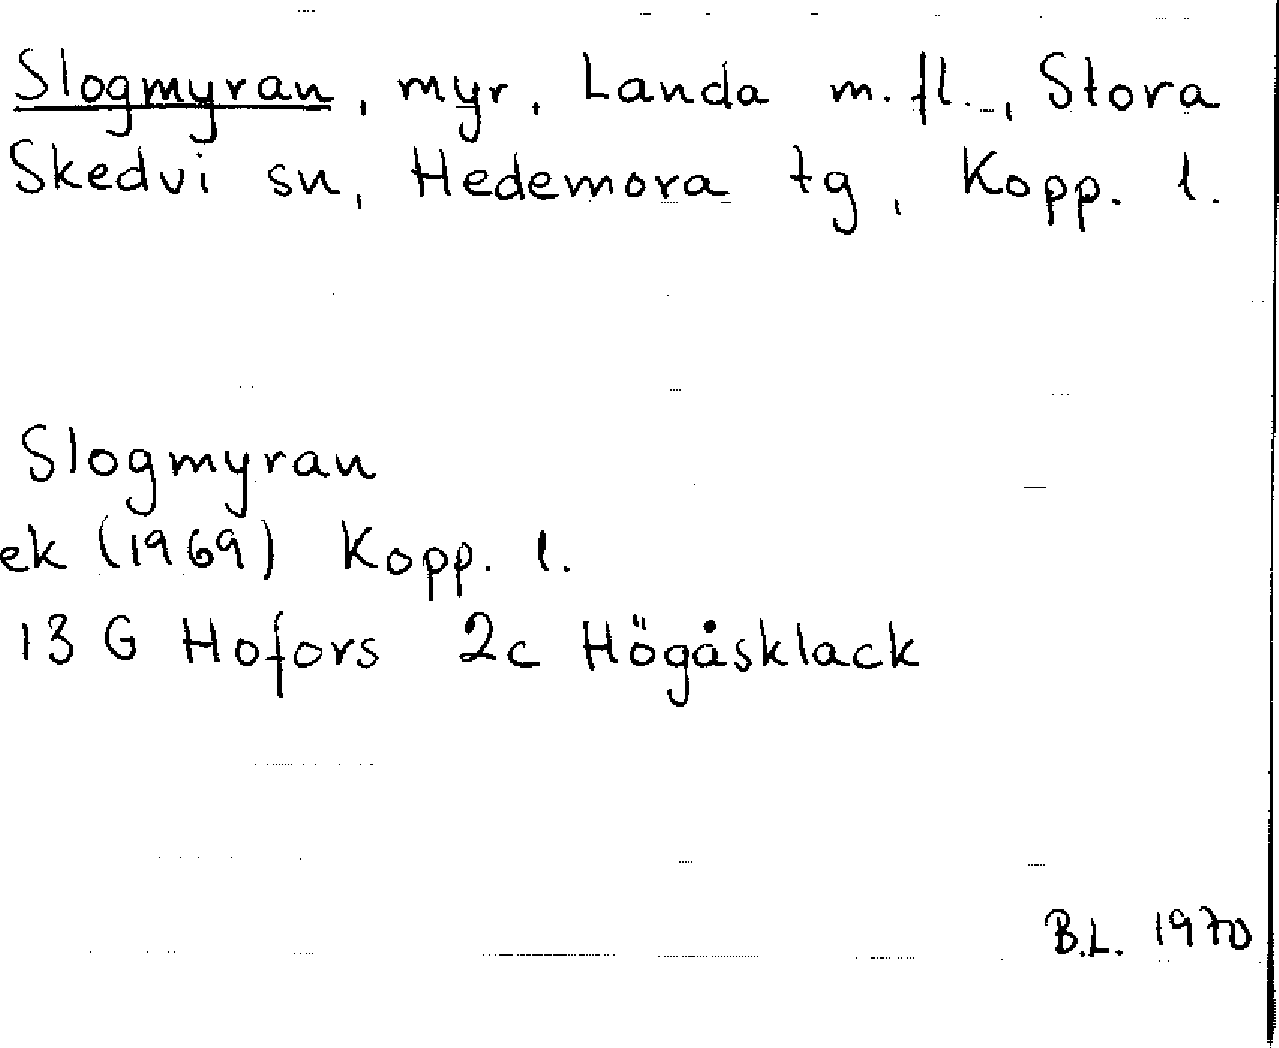 Slogmyran, myr, Landa m.fl., Stora
Skedvi sn, Hedemora tg, Kopp. l.
Slogmyran
ek (1969) Kopp. l.
13 G Hofors 2c Högåsklack
B.L. 1970